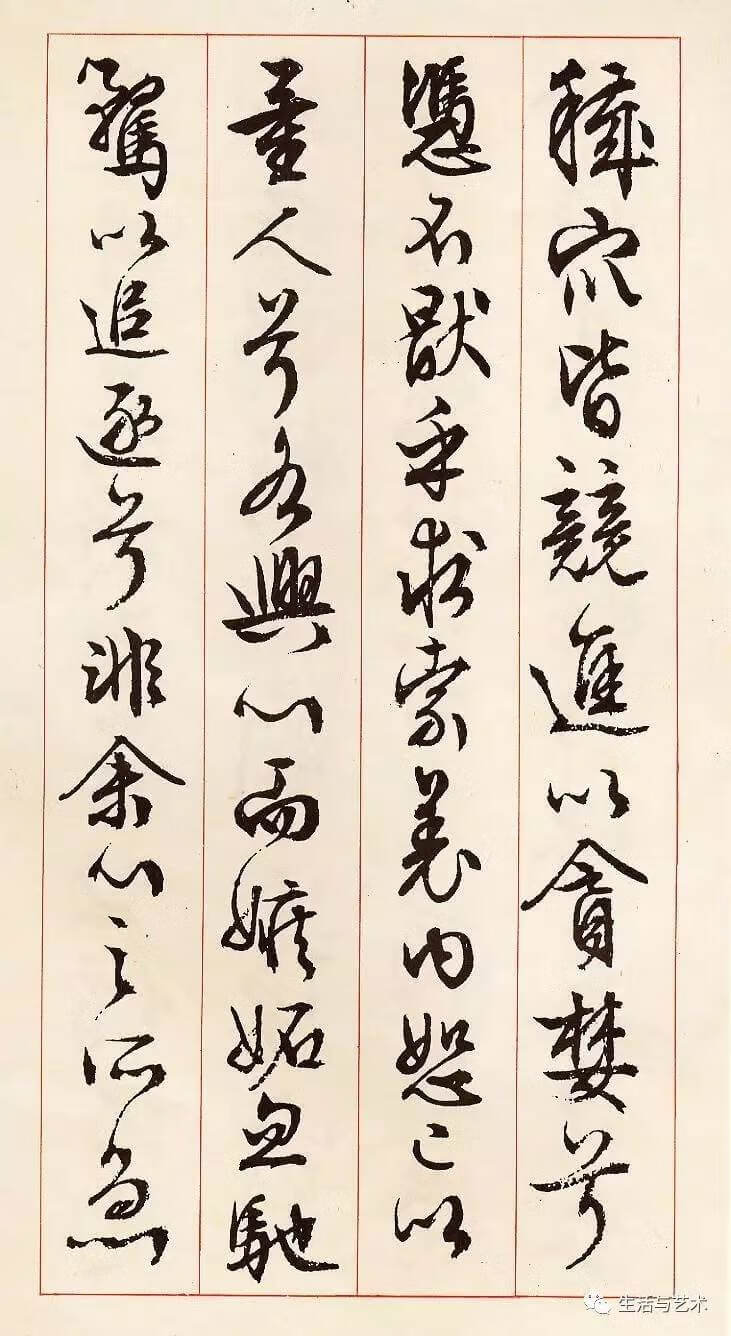 穢眾皆競進以貪婪兮
憑不猒乎求索羌内恕己以
量人兮各興心而嫉妬忽馳
騖以追逐兮非余心之所急
生活与艺术